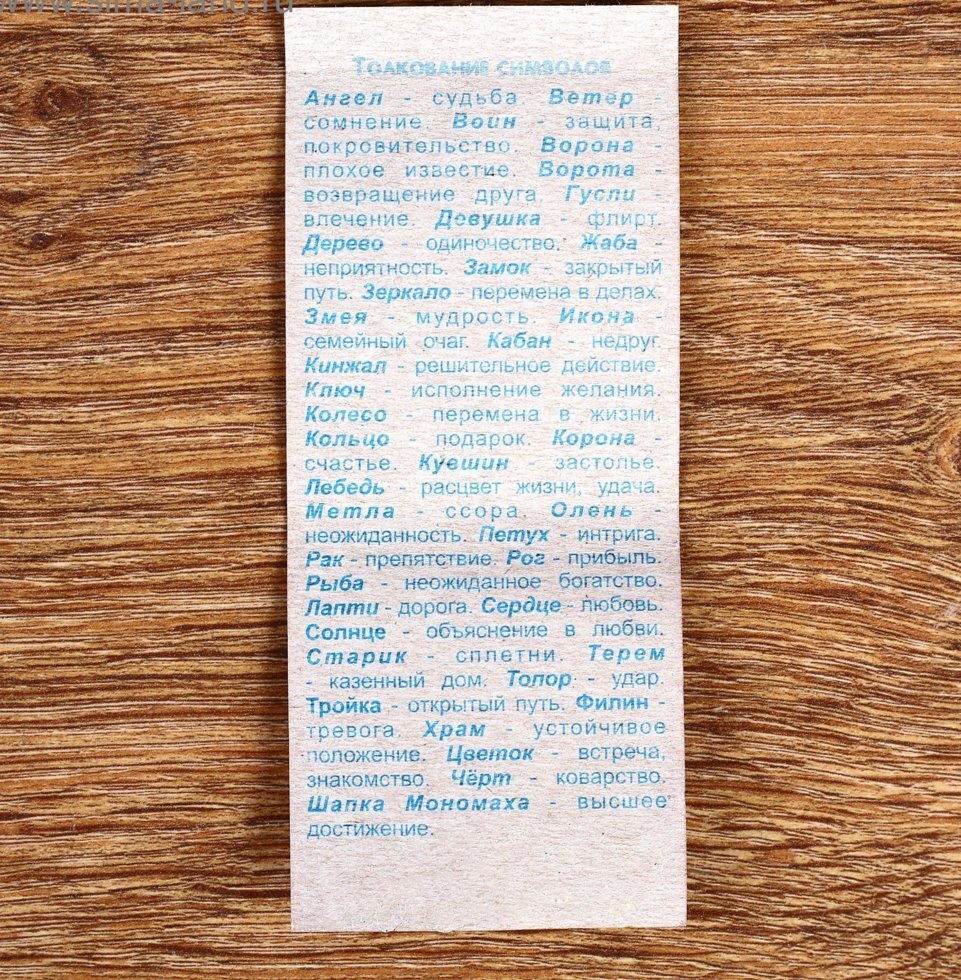 www.sima-land.ru
Толкование символов
Ангел - судьба. Ветер -
сомнение. Воин - защита,
покровительство. Ворона -
плохое известие. Ворота -
возвращение друга. Гусли -
влечение. Девушка - флирт.
Дерево - одиночество. Жаба -
неприятность. Замок - закрытый
путь. Зеркало - перемена в делах.
Змея - мудрость. Икона -
семейный очаг. Кабан - недруг.
Кинжал - решительное действие.
Ключ - исполнение желания.
Колесо - перемена в жизни.
Кольцо - подарок. Корона -
счастье. Кувшин - застолье.
Лебедь - расцвет жизни, удача.
Метла - ссора. Олень -
неожиданность. Петух - интрига.
Рак - препятствие. Рог - прибыль.
Рыба - неожиданное богатство.
Лапти - дорога. Сердце - любовь.
Солнце - объяснение в любви.
Старик - сплетни. Терем
- казенный дом. Топор - удар.
Тройка - открытый путь. Филин -
тревога. Храм - устойчивое
положение. Цветок - встреча,
знакомство. Чёрт - коварство.
Шапка Мономаха - высшее
достижение.